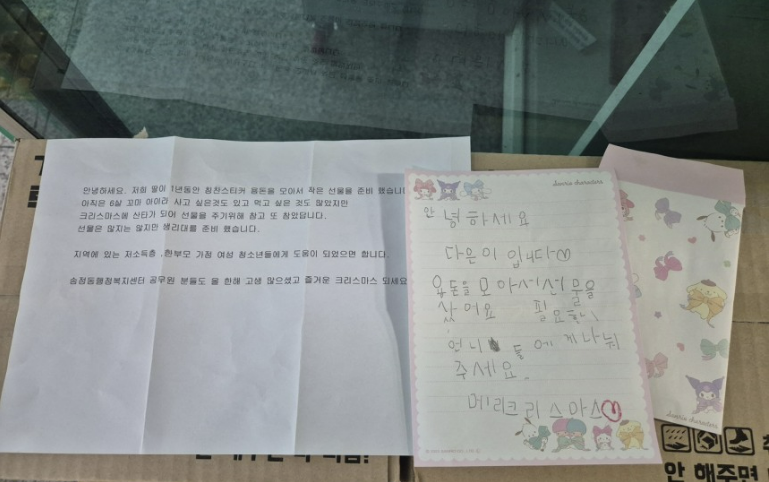 안녕하세요. 저희 딸이 1년동안 칭찬스티커 용돈을 모아서 작은 선물을 준비 했습니
아직은 6살 꼬마 아이라 사고 싶은것도 있고 먹고 싶은 것도 많았지만
크리스마스에 산타가 되어 선물을 주기위해 참고 또 참았답니다.
선물은 많지는 않지만 생리대를 준비 했습니다.
지역에 있는 저소득층 ,한부모 가정 여성 청소년들에게 도움이 되었으면 합니다.
송정동행정복지센터 공무원 분들도 올 한해 고생 많으셨고 즐거운 크리스마스 되세요
Sanrio characters
안녕하세요
다은이 입니다♡
용돈을 모아서선물을
샀어요 필요한
언니들에게나눠
주세요.
메리크리스마스♡
Sanrio characters
안 해주면